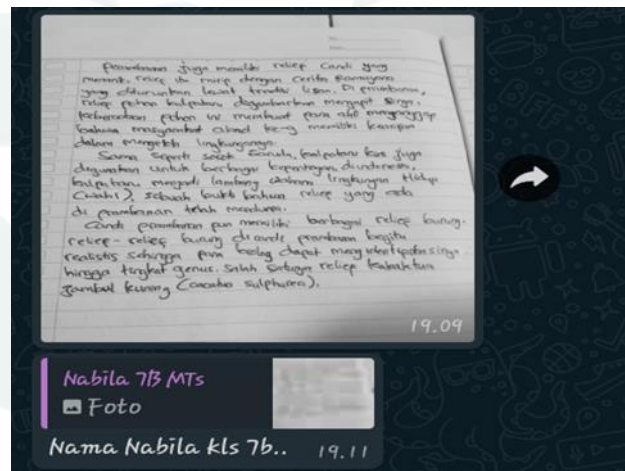 Prambanan juga memiliki relief candi yang
menarik, relief itu mirip dengan cerita Ramayana
yang diturunkan lewat tradisi lisan. Di prambanan,
relief pohon kalpataru digambarkan mengapit singa.
keberadaan pohon ini membuat para ahli menganggap
bahwa masyarakat abad ke-9 memiliki kearifan
dalam mengelola lingkungannya.
Sama seperti sosok Garuda, kalpataru kini juga
digunakan untuk berbagai kepentingan di indonesia.
kalpataru menjadi lambang wahana lingkungan Hidup
(walhi), sebuah bukti bahwa relief yang ada
di prambanan telah mendunia.
Candi prambanan pun memiliki berbagai relief burung.
relief-relief burung di candi prambanan begitu
realistis sehingga para biolog dapat
hingga tingkat genus. Salah Satunya relief kakaktua
Jambul kuning (cacatua sulphurea).
19.09
Nabila 7B MTs
Foto
Nama Nabila kls 7b..
19.11